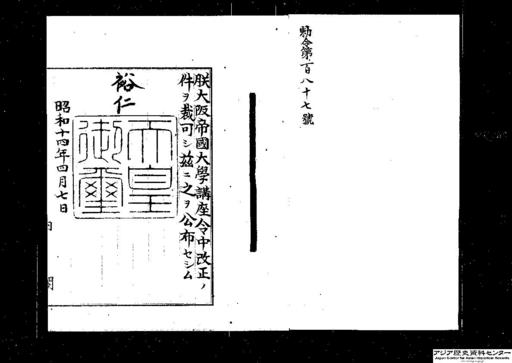 勅令第百八十七號
朕大阪帝國大學講座令中改正ノ
件ヲ裁可シ茲ニ之ヲ公布セシム
裕仁
天皇御璽
昭和十四年四月七日
内閣
アジア歴史資料センター
Japan Center for Asian Historical Records